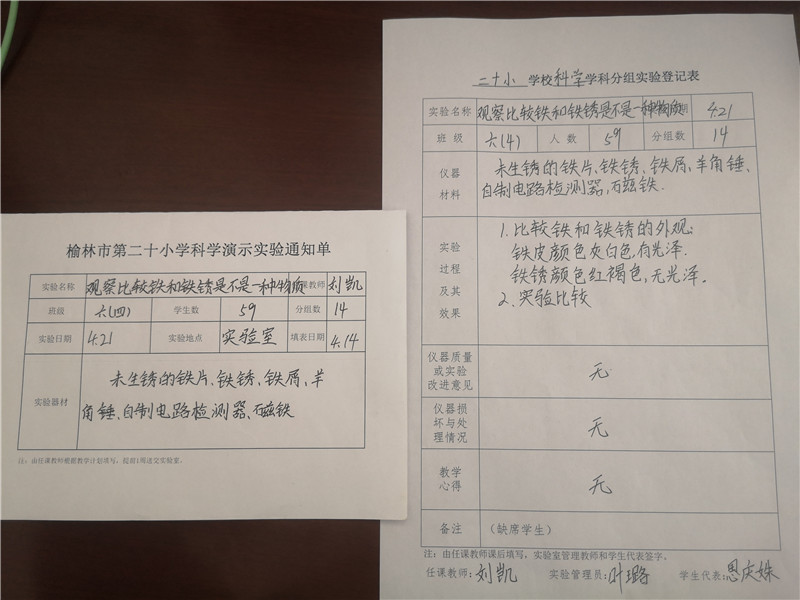 榆林市第二十小学科学演示实验通知单
实验名称 观察比较铁和铁锈是不是一种物质 教师 刘凯
班级 六(四) 学生数 59 分组数 14
实验日期 4.21 实验地点 实验室 填表日期 4.14
实验器材 未生锈的铁片、铁锈、铁屑、羊
角锤、自制电路检测器、石磁铁
注：由任课教师根据教学计划填写，提前1周送交实验室。
二十小 学校 科学 学科分组实验登记表
实验名称 观察比较铁和铁锈是不是一种物质 期 4.21
班级 六(4) 人数 59 分组数 14
仪器材料 未生锈的铁片、铁锈、铁屑、羊角锤、
自制电路检测器、石磁铁.
实验过程及其效果
1. 比较铁和铁锈的外观：
铁皮颜色灰白色,有光泽.
铁锈颜色红褐色,无光泽.
2. 实验比较
仪器质量或实验改进意见 无
仪器损坏与处理情况 无
教学心得 无
备注 （缺席学生）
注：由任课教师课后填写，实验室管理教师和学生代表签字。
任课教师:刘凯 实验管理员:叶璐 学生代表: